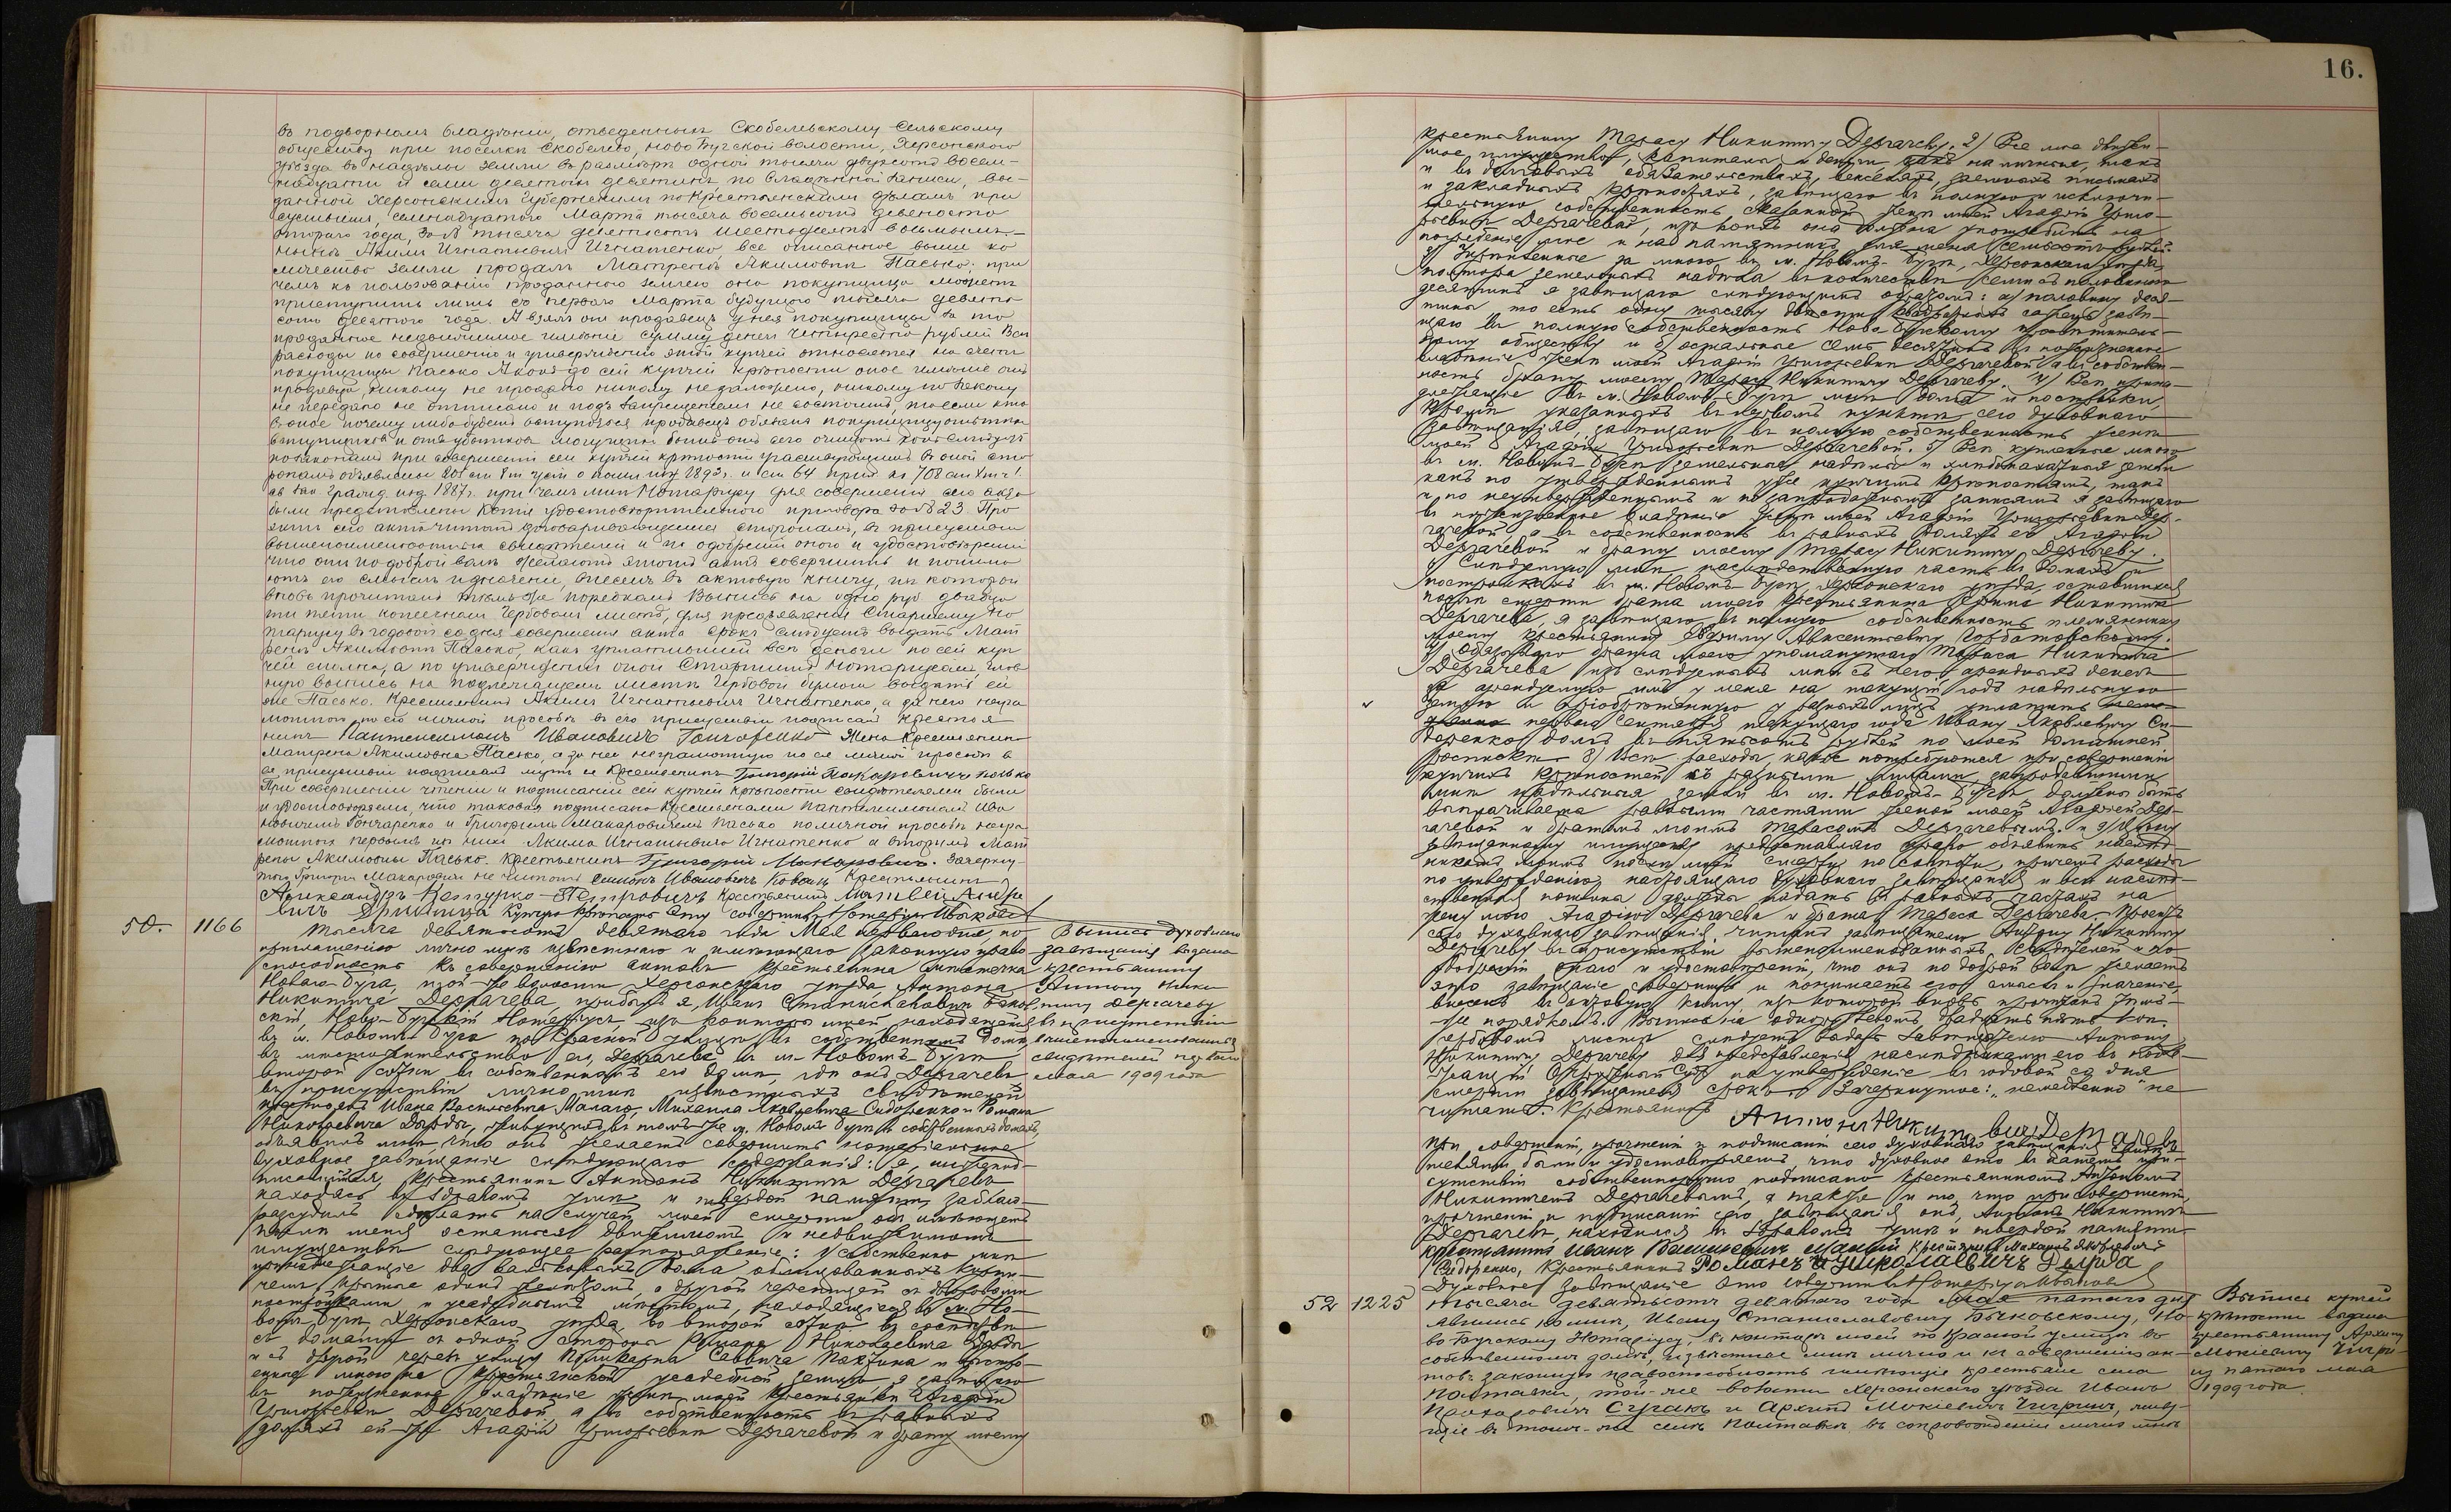 въ подворномъ владѣніи, отведенныхъ Скобелевскому Сельскому
обществу при поселкѣ Скобелево, Ново Бугской волости, Херсонскаго
уѣзда въ надѣлъ земли въ размѣрѣ одной тысячи двухсотъ восем-
надцати и семи десятыхъ десятинъ по владѣнной записи, вы-
данной Херсонскимъ Губернскимъ по Крестьянскимъ дѣламъ при
сутствіемъ, семнадцатаго Марта тысяча восемьсотъ девяносто
второго года, за № тысяча девятьсотъ шестьдесятъ восьмымъ.
Акимъ Игнатьевичъ Игнатенко все описанное выше ко
личество земли продалъ Матренѣ Акимовнѣ Пасько; при
чемъ къ пользованію проданною землею она покупщица можетъ
приступить лишь съ перваго Марта будущаго тысяча девять
сотъ десятаго года. А взялъ онъ продавецъ у нея покупщицы за то
проданное недвижимое имѣніе сумму денегъ четыреста рублей Всѣ
расходы по совершенію и утвержденію этой купчей относятся на счетъ
покупщицы Пасько А до сей купчей крѣпости оное имѣніе отъ
продавца никому не продано никому не заложено, никому по
не передано не отписано и подъ запрещеніемъ не состоитъ, то если кто
въ оное почему либо будетъ вступаться продавецъ обязанъ покупщицу
вступщиковъ и отъ убытковъ могущихъ быть отъ сего очищать какъ слѣдуетъ
по законамъ при совершеніи сей купчей крѣпости участвующимъ въ оной сто
ронамъ объявлены изд 1893г. и ст 64 прил къ 708 ст X т ч 1
св зак Гражд. изд. 1887г. при чемъ мнѣ Нотаріусу для совершенія сего акта
были представлены копія удостовѣрительнаго приговора за № 23. Про
актъ сей прочитанъ договаривающимся сторонамъ, въ присутствіи
вышепоименованныхъ свидѣтелей и по одобреніи оного и удостовѣреніи
что они по доброй волѣ желаютъ этотъ актъ совершить и понима
ютъ его смыслъ и значеніе, внесенъ въ актовую книгу, изъ которой
вновь прочитанъ тѣмъ же порядкомъ Выпись на одно руб двадца
ти пяти копеечномъ Гербовомъ листѣ, для предъявленія Старшему Но
таріусу въ годовой со дня совершенія акта срокъ слѣдуетъ выдать Мат
ренѣ Акимовнѣ Пасько, какъ уплатившей всѣ деньги по сей куп
чей сполна, а по утвержденіи оной Старшимъ Нотаріусомъ, глав
ную выпись на подлежащемъ листѣ Гербовой бумаги выдать ей
же Пасько. Крестьянинъ Акимъ Игнатьевичъ Игнатенко, а за него негра
мотнаго по его личной просьбѣ въ его присутствіи подписалъ Крестья
нинъ Пантелимонъ Ивановичъ Гончаренко Жена Крестьянина
Матрена Акимовна Пасько, а за нее неграмотную по ея личной просьбѣ в
ея присутствіи подписалъ мужъ ея Крестьянинъ Григорій Макаровичъ Пасько
При совершеніи чтеніи и подписаніи сей купчей крѣпости свидѣтелями были
и удостовѣряемъ, что таковая подписана Крестьянами Пантелимономъ Ива
новичемъ Гончаренко и Григоріемъ Макаровичемъ Пасько по личной просьбѣ негра
мотныхъ первымъ изъ нихъ Акима Игнатьевича Игнатенко а вторымъ Мат
рены Акимовны Пасько. Крестьянинъ Григорій Макаровичъ. Зачеркну-
тое Григорій Макаровичъ не читать Симонъ Ивановичъ Коваль Крестьянинъ
Александръ Петровичъ Крестьянинъ Матвей Андре
вичъ Купчую Крѣпость эту совершилъ Нотаріусъ Бычковскій
50. 1166
Тысяча девятьсотъ девятаго года Мая перваго дня, по
приглашенію лично мнѣ извѣстнаго и имѣющаго законную право-
способность къ совершенію актовъ крестьянина мѣстечка
Новаго-Буга, той-же волости Херсонскаго уѣзда, Антона
Никитича Дергачева, прибылъ я, Иванъ Станиславовичъ Бычков-
скій, Ново-Бугскій Нотаріусъ, изъ конторы моей находящейся
въ м. Новомъ Бугѣ по Красной улицѣ въ собственномъ домѣ,
въ мѣстожительство его, Дергачева въ м. Новомъ-Бугѣ
второй сотни въ собственномъ его домѣ, гдѣ онъ Дергачевъ
въ присутствіи лично мнѣ извѣстныхъ свидѣтелей
крестьянъ Ивана Васильевича Малаго, Михаила Яковлевича Сидоренко и Романа
Николаевича Дырды, живущихъ въ томъ-же м. Новомъ Бугѣ въ собственныхъ домахъ,
объявилъ мнѣ, что онъ желаетъ совершить нотаріальное
духовное завѣщаніе слѣдующаго содержанія: Я, нижепод-
писавшійся, крестьянинъ Антонъ Никитичъ Дергачевъ
находясь въ здравомъ умѣ и твердой памяти, заблаго-
разсудилъ сдѣлать на случай моей смерти объ имѣющемъ
послѣ меня остаться движимомъ и недвижимомъ
имуществѣ слѣдующее распоряженіе: 1) Собственно мнѣ
принадлежащіе два дома облицованныхъ кирпи-
чемъ крытые одинъ желѣзомъ, а другой черепицей съ дворовыми
постройками и усадебнымъ мѣстомъ, находящіеся въ м. Но-
вомъ Бугѣ, Херсонскаго уѣзда, во второй сотнѣ въ сосѣдствѣ
съ домами съ одной стороны Романа Николаевича Дырды
и съ другой черезъ улицу Поликарпа Саввича и выстро-
енные мною на крестьянской усадебной землѣ, я завѣщаю
въ пожизненное владѣніе женѣ моей Крестьянкѣ Агафіи
Григорьевнѣ Дергачевой а въ собственность въ равныхъ
доляхъ ей-же Агафіи Григорьевнѣ Дергачевой и брату моему
Выпись духовнаго
завѣщанія выдана
крестьянину
Антону Ники-
тичу Дергачеву
въ присутствіи
вышепоименованныхъ
свидѣтелей перваго
мая 1909 года
16.
крестьянину Тарасу Никитичу Дергачеву. 2) Все мое движи-
мое имущество, капиталы и деньги, какъ наличныя, такъ
и въ долговыхъ обязательствахъ, векселяхъ, заемныхъ письмахъ
и закладныхъ крѣпостяхъ, завѣщаю въ полную и исключи-
тельную собственность сказанной женѣ моей Агафіи Григо-
рьевнѣ Дергачевой, изъ коихъ она должна употребить на
погребеніе мое и на памятникъ для меня семьсотъ рублей.
3) за мною въ м. Новомъ-Бугѣ, Херсонскаго уѣзда,
полтора земельныхъ надѣла въ количествѣ семи съ половиною
десятинъ я завѣщаю слѣдующимъ образомъ: а) половину деся-
тины то есть одну тысячу двѣсти квадратныхъ саженъ завѣ-
щаю въ полную собственность Ново-Бугскому
ному обществу и б) остальныя семь десятинъ въ пожизненное
владѣніе женѣ моей Агафіи Григорьевнѣ Дергачевой а въ собствен-
ность брату моему Тарасу Никитичу Дергачеву. 4) Всѣ прина-
длежащіе въ м. Новомъ-Бугѣ мнѣ дома и постройки
кромѣ указанныхъ въ первомъ пунктѣ сего духовнаго
завѣщанія, завѣщаю въ полную собственность женѣ
моей Агафіи Григорьевнѣ Дергачевой. 5) Всѣ купленные мною
въ м. Новомъ-Бугѣ земельные надѣлы и земли
какъ по утвержденнымъ уже купчимъ крѣпостямъ, такъ
и по неутвержденнымъ и по запродажнымъ записямъ я завѣщаю
въ пожизненное владѣніе женѣ моей Агафіи Григорьевнѣ Дер-
гачевой, а въ собственность въ равныхъ доляхъ ей Агафіи
Дергачевой и брату моему Тарасу Никитичу Дергачеву.
6) Слѣдуемую мнѣ наслѣдственную часть въ домахъ и
постройкахъ въ м. Новомъ Бугѣ, Херсонскаго уѣзда, оставшихся
послѣ смерти брата моего крестьянина Никитича
Дергачева, я завѣщаю въ полную собственность племяннику
моему крестьянину Авксентьевичу Горбатовскому.
7) Обязываю брата моего упомянутаго Тараса Никитича
Дергачева изъ слѣдуемыхъ мнѣ съ него арендныхъ денегъ
за арендуемую имъ у меня на текущій годъ надѣльную
землю и пріобрѣтенную у разныхъ лицъ уплатить неме-
дленно перваго Сентября текущаго года Ивану Яковлевичу Си-
доренко долгъ въ пятьсотъ рублей по моей домашней
роспискѣ. 8) Всѣ расходы, какіе потребуются при совершеніи
купчихъ крѣпостей съ разными лицами, запродавшими
мнѣ надѣльныя земли въ м. Новомъ-Бугѣ должны быть
выплачиваемы равными частями женою моей Агафіей Дер-
гачевой и братомъ моимъ Тарасомъ Дергачевымъ. и 9) Цѣну
завѣщанному имуществу предоставляю право объявить наслѣд-
никамъ моимъ послѣ моей смерти по совѣсти, причемъ расходы
по утвержденію настоящаго духовнаго завѣщанія и всѣ наслѣд-
ственныя пошлины должны падать въ равныхъ частяхъ на
жену мою Агафію Дергачеву и брата Тараса Дергачева. Проектъ
сего духовнаго завѣщанія читанъ завѣщателю Антону Никитичу
Дергачеву въ присутствіи вышепоименованныхъ свидѣтелей и по
одобреніи онаго и удостовѣреніи, что онъ по доброй волѣ желаетъ
это завѣщаніе совершить и понимаетъ его смыслъ и значеніе,
внесенъ въ актовую книгу изъ которой вновь прочитанъ тѣмъ-
же порядкомъ. Выпись на одномъ рублевомъ двадцать пять коп.
гербовомъ листѣ слѣдуетъ выдать завѣщателю Антону
Никитичу Дергачеву для представленія наслѣдниками его въ подле-
жащій Окружный Судъ на утвержденіе въ годовой со дня
смерти завѣщателя срокъ. Зачеркнутое: „немедленно" не
читать. Крестьянинъ
Антонъ Никитовичъ Дергачевъ
При совершеніи, прочтеніи и подписаніи сего духовнаго завѣщанія свидѣ-
телями были и удостовѣряемъ, что духовное это въ нашемъ при-
сутствіи собственноручно подписано крестьяниномъ Антономъ
Никитичемъ Дергачевымъ, а также и то, что при совершеніи,
прочтеніи и подписаніи сего завѣщанія онъ, Антонъ Никитичъ
Дергачевъ, находился въ здравомъ умѣ и твердой памяти
крестьянинъ Иванъ Васильевичъ Малый Крестьянинъ Михаилъ Яковлевичъ
Сидоренко, Крестьянинъ Романъ Николаевичъ Дырда
Духовное завѣщаніе это совершилъ Нотаріусъ Бычковскій
52 1225
Тысяча девятьсотъ девятаго года мая пятаго дня
явились ко мнѣ, Ивану Станиславовичу Бычковскому, Но-
во Бугскому Нотаріусу, въ контору мою по Красной улицѣ въ
собственномъ домѣ, извѣстные мнѣ лично и къ совершенію ак-
товъ законную правоспособность имѣющіе крестьяне села
Полтавки, той-же волости Херсонскаго уѣзда Иванъ
Прохоровичъ Сугакъ и Архипъ Мокіевичъ Чигринъ, живу-
щіе въ томъ-же селѣ Полтавкѣ въ сопровожденіи лично мнѣ
Выпись купчей
крѣпости выдана
крестьянину Архипу
Мокіевичу Чигри-
ну пятаго мая
1909 года.